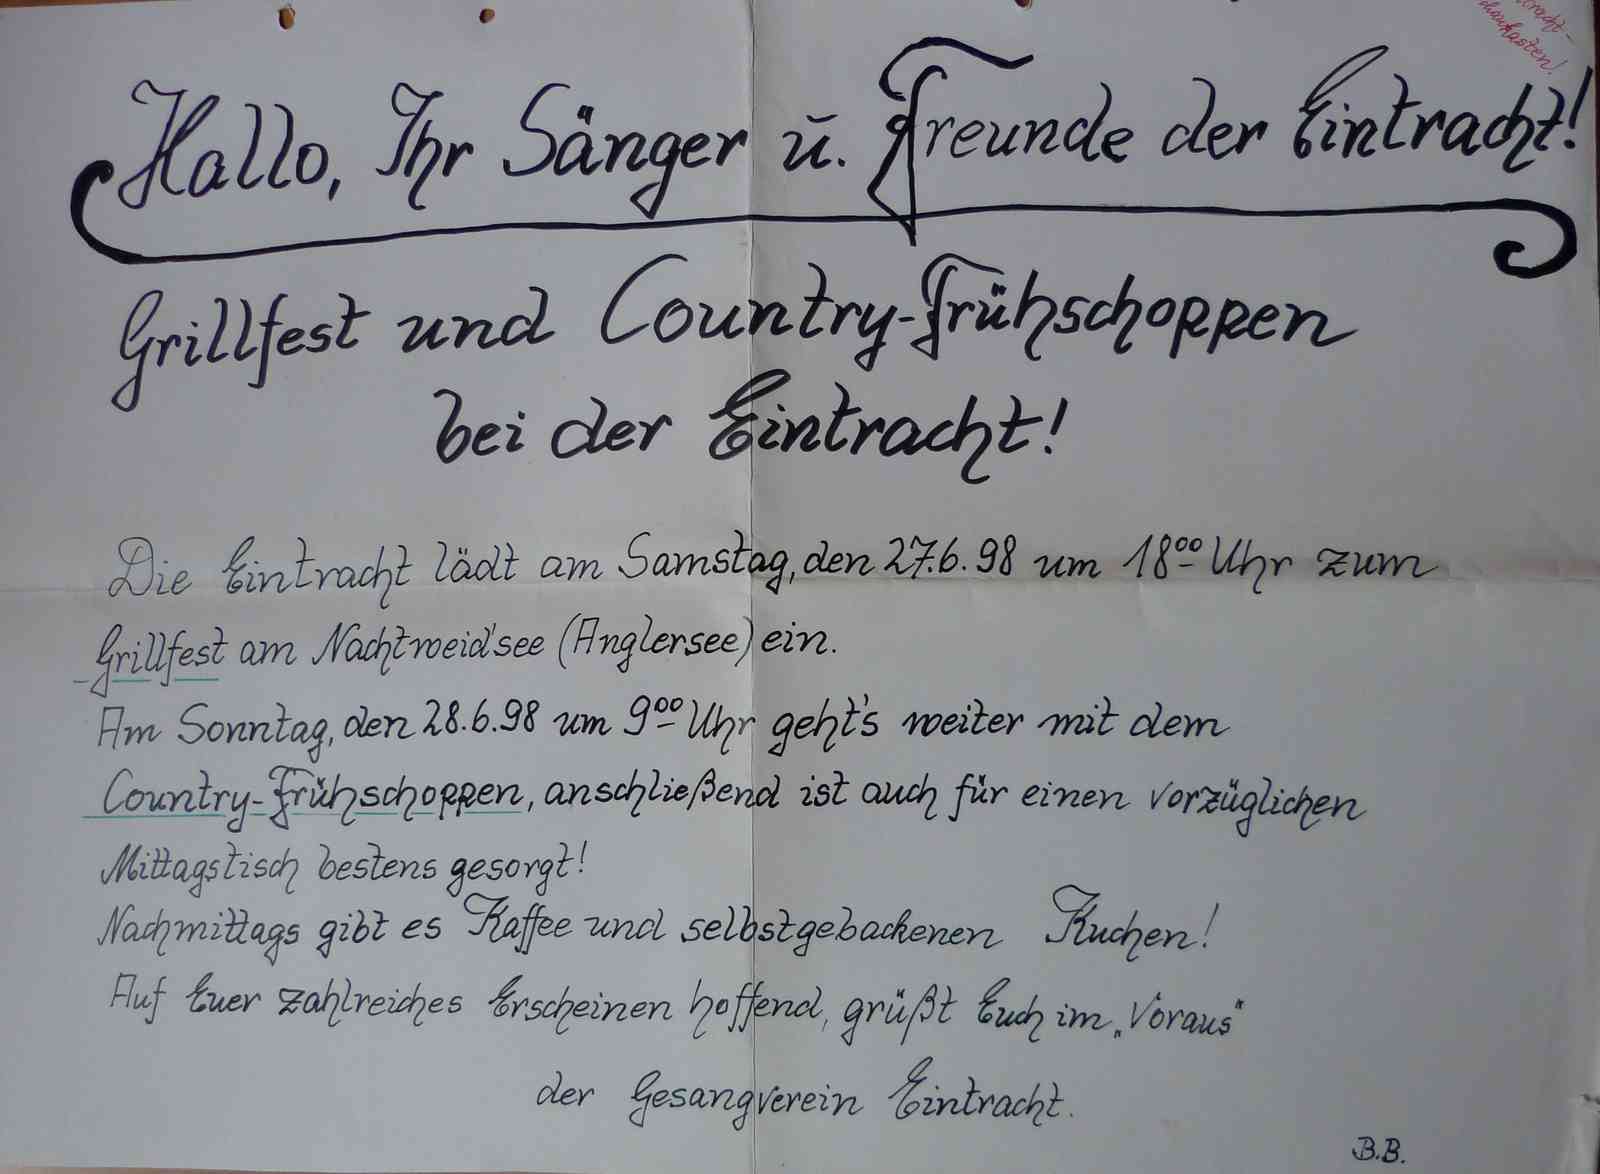 Hallo, Ihr Sänger u. Freunde der Eintracht!
Grillfest und Country-Frühschoppen
bei der Eintracht!
Die Eintracht lädt am Samstag, den 27.6.98 um 18⁰⁰ Uhr zum
Grillfest am Nachtweid'see (Anglersee) ein.
Am Sonntag, den 28.6.98 um 9⁰⁰ Uhr geht's weiter mit dem
Country-Frühschoppen, anschließend ist auch für einen vorzüglichen
Mittagstisch bestens gesorgt!
Nachmittags gibt es Kaffee und selbstgebackenen Kuchen!
Auf Euer zahlreiches Erscheinen hoffend, grüßt Euch im „Voraus"
der Gesangverein Eintracht.
B.B.